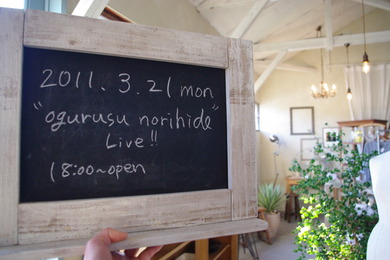 2011. 3. 21 mon
"ogurusu norihide"
Live!!
18:00~open